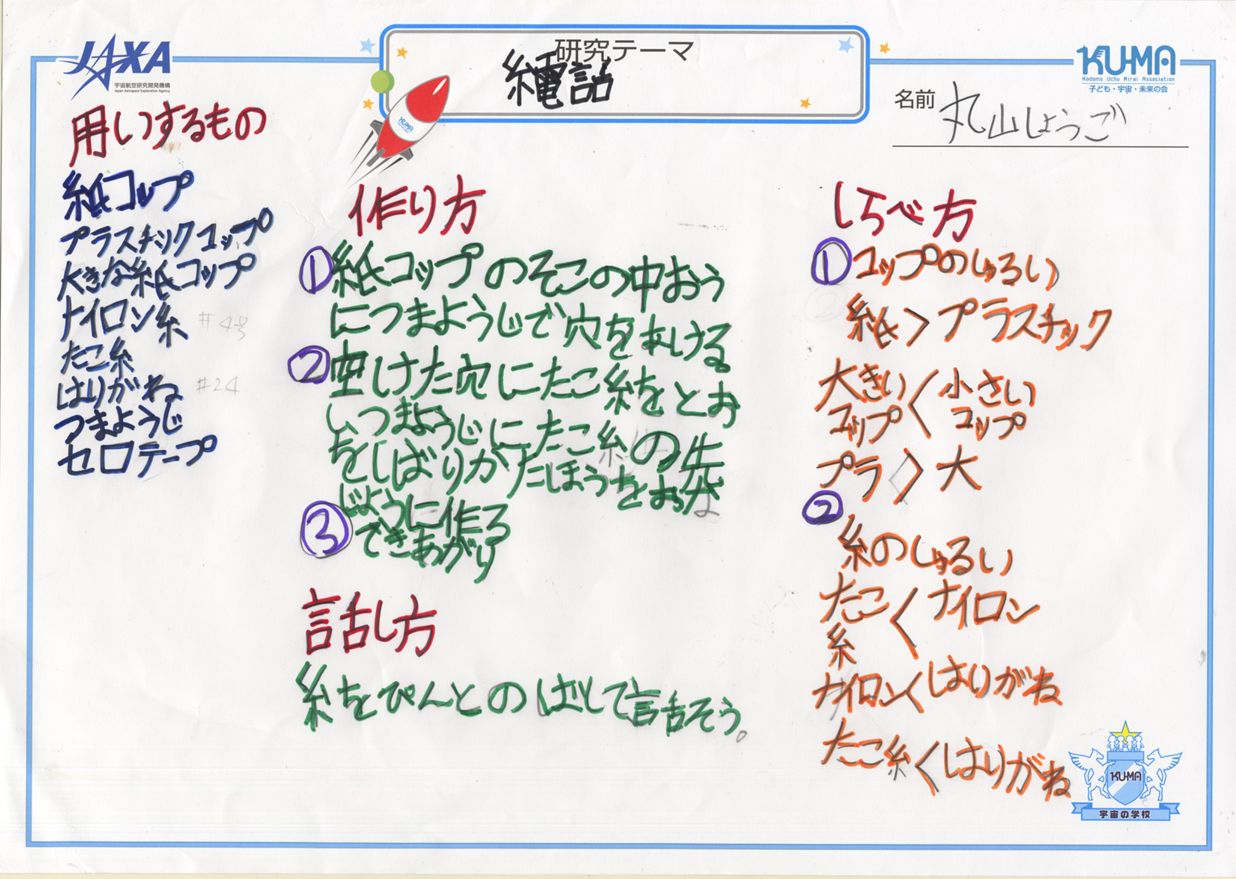 JAXA
宇宙航空研究開発機構
Japan Aerospace Exploration Agency
研究テーマ
糸電話
KU-MA
Kodomo Uchu Mirai Association
子ども・宇宙・未来の会
名前 丸山しょうご
用いするもの
紙コップ
プラスチックコップ
大きな紙コップ
ナイロン糸 #4号
たこ糸
はりがね #24
つまようじ
セロテープ
作り方
①紙コップのそこの中おう
につまようじで穴をあける
②空けた穴にたこ糸をとお
し、つまようじにたこ糸の先
をしばりかたほうをおな
じように作る
③できあがり
話し方
糸をぴんとのばして話そう。
しらべ方
①コップのしゅるい
紙>プラスチック
大きい<小さい
コップ コップ
プラ>大
②
糸のしゅるい
たこ<ナイロン
糸
ナイロン<はりがね
たこ糸<はりがね
KU-MA
KU-MA
宇宙の学校